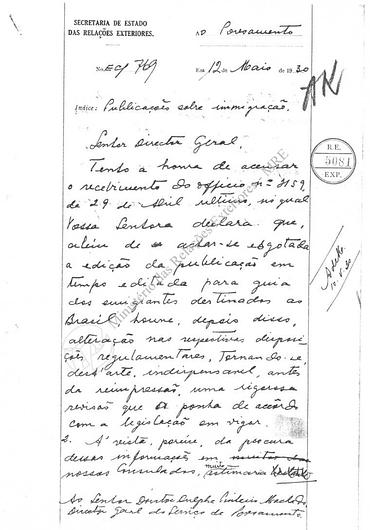 SECRETARIA DE ESTADO
DAS RELAÇÕES EXTERIORES.
AO Povoamento
No. EC/ 769
Em 12 de Maio de 1930
Indice: Publicações sobre immigração.
Senhor Director Geral,
Tenho a honra de accusar
o recebimento do officio nº 3159,
de 29 de Abril ultimo, no qual
Vossa Senhoria declara que,
além de achar-se esgotada
a edição da publicação em
tempo editada para guia
dos emigrantes destinados ao
Brasil houve, depois disso,
alteração nas respectivas disposi-
ções regulamentares, tornando-se,
dest'arte, indispensavel, antes
da reimpressão, uma rigorosa
revisão que a ponha de accôrdo
com a legislação em vigor.
2. A' vista, porém, da procura
dessas informações em
nossos Consulados, muito estimaria
Ao Senhor Doutor Dulphe Pinheiro Machado
Director Geral do Serviço de Povoamento.
R.E.
5081
EXP.
Ministério das Relações Exteriores - MRE